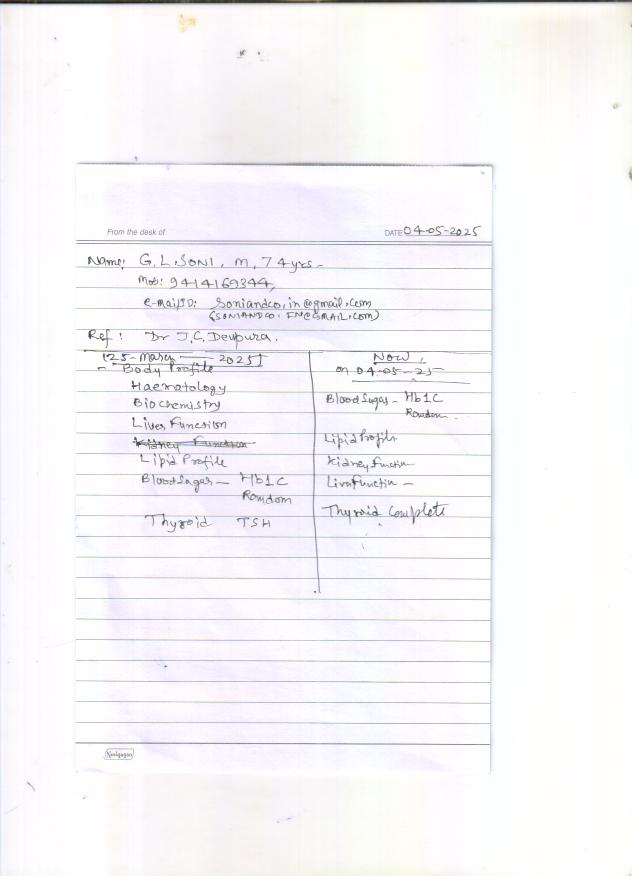 From the desk of
DATE 04-05-2025
Name: G.L. SONI, M, 74yrs-
Mob: 9414169344,
e-mail ID: soniandco.in@gmail.com
(SONIANDCO.IN@GMAIL.COM)
Ref: Dr J.C. Devpura.
25-March 2025
- Body Profile
Haematology
Biochemistry
Liver Function
Kidney Function
Lipid Profile
Blood Sugar - Hb1C
Random
Thyroid TSH
NOW,
on 04-05-25
Blood Sugar - Hb1C
Random -
Lipid Profile
Kidney Function
Liver Function -
Thyroid Complete
Navigagan